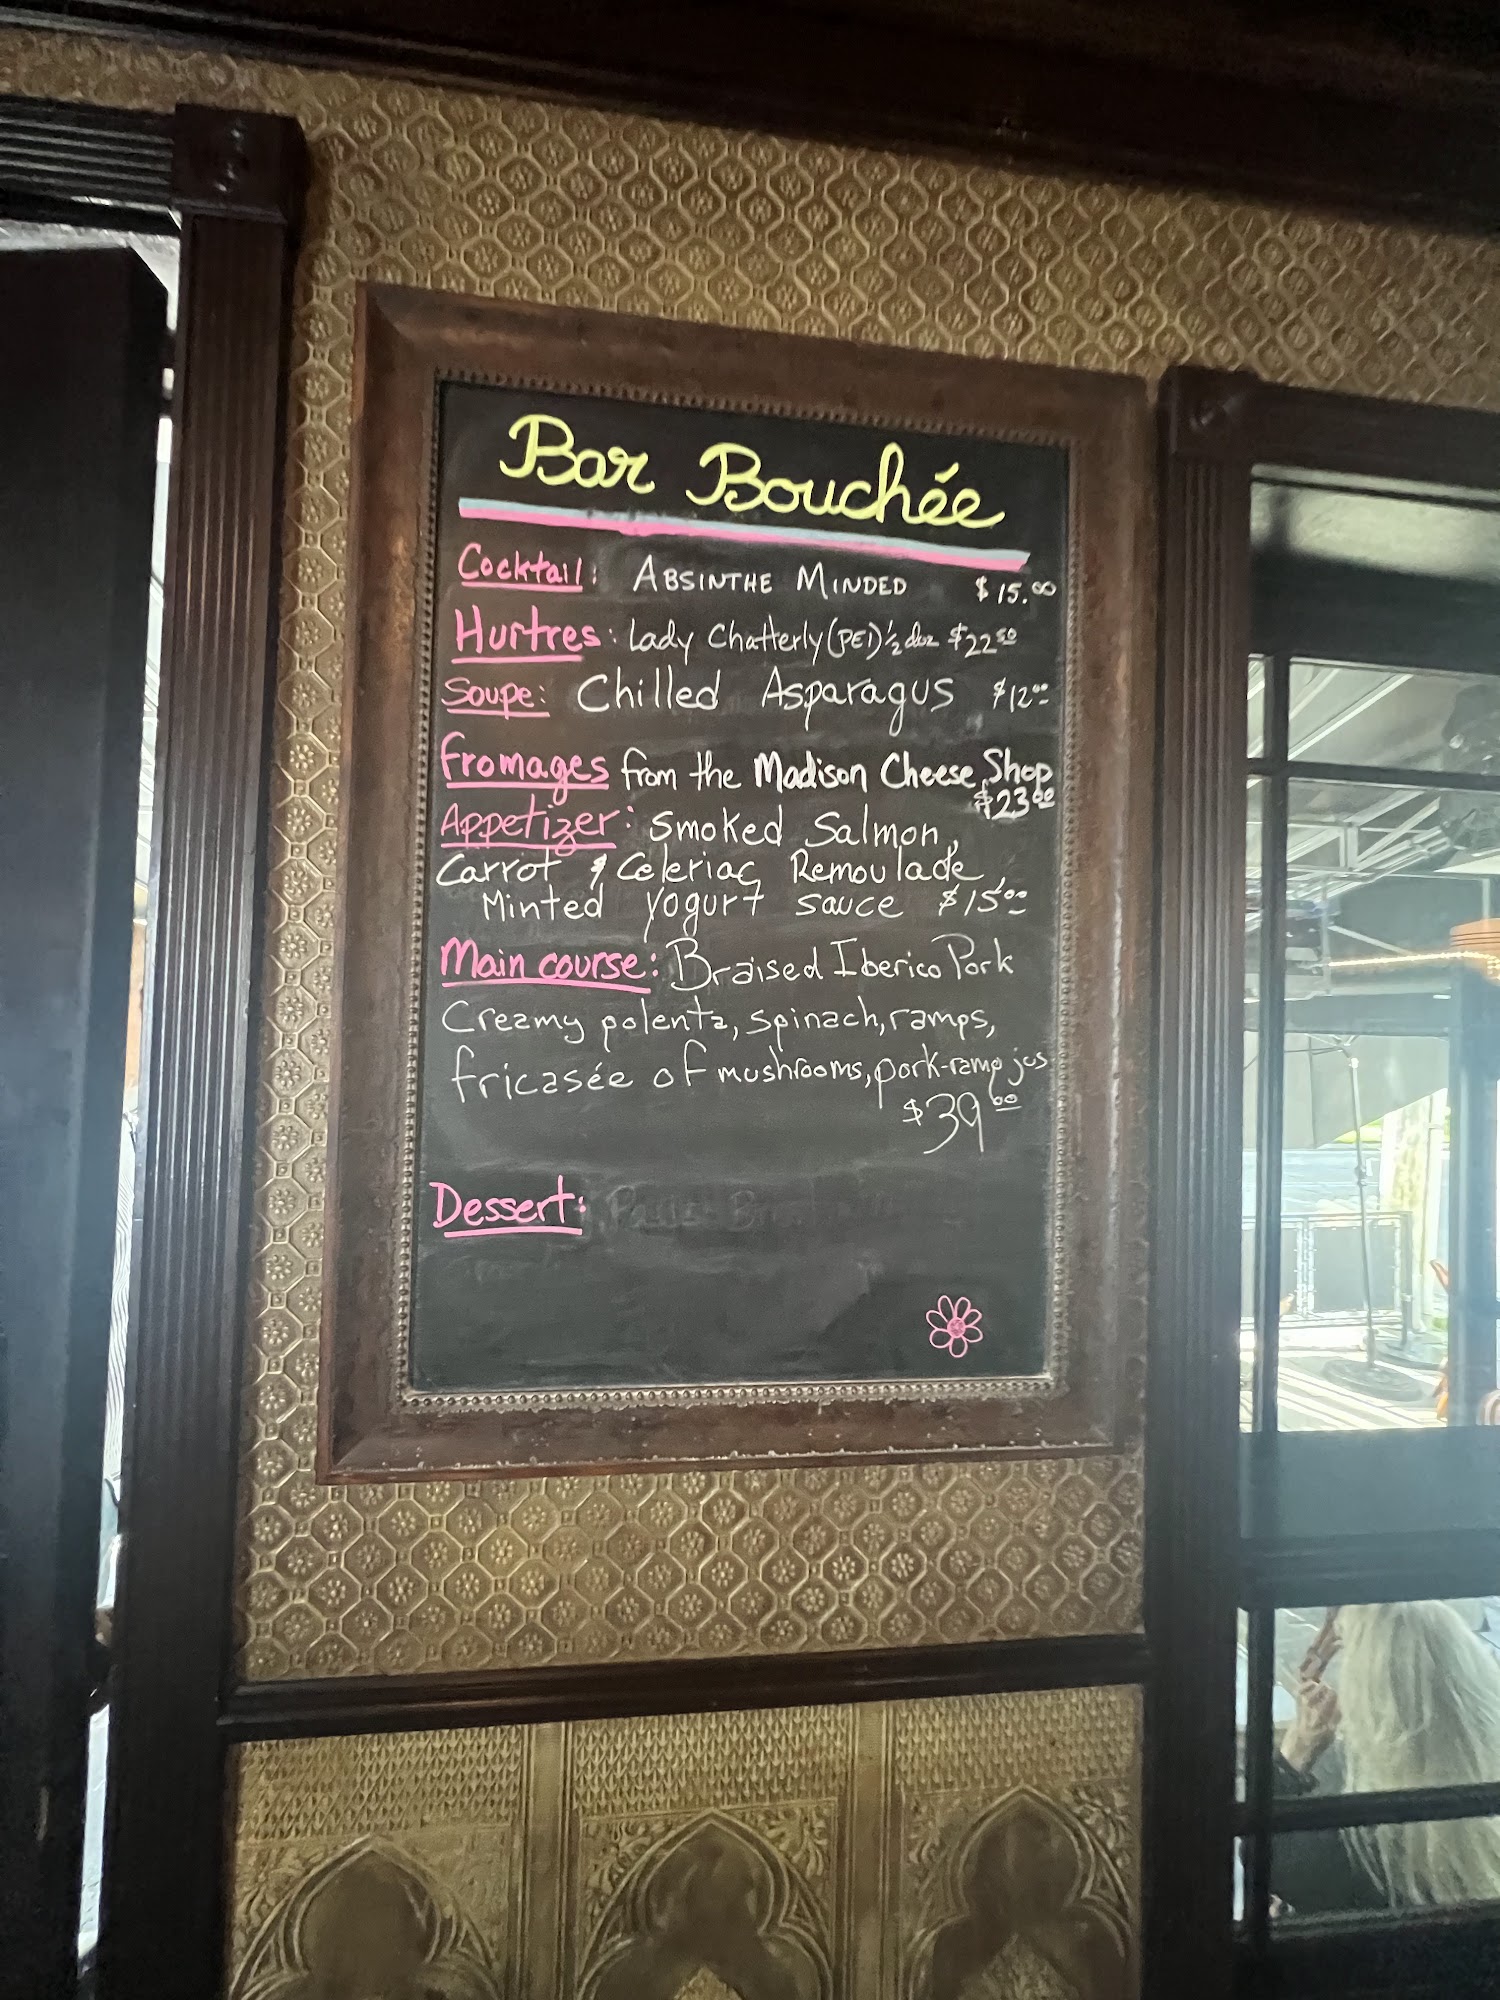 Bar Bouchée
Cocktail: ABSINTHE MINDED $15.00
Hurtres: Lady Chatterly (PEI) ½ doz $22.50
Soupe: Chilled Asparagus $12.00
Fromages from the Madison Cheese Shop
$23.00
Appetizer: Smoked Salmon,
Carrot & Celeriac Remoulade,
Minted Yogurt sauce $15.00
Main course: Braised Iberico Pork
Creamy polenta, spinach, ramps,
fricasée of mushrooms, pork-ramp jus
$39.00
Dessert: